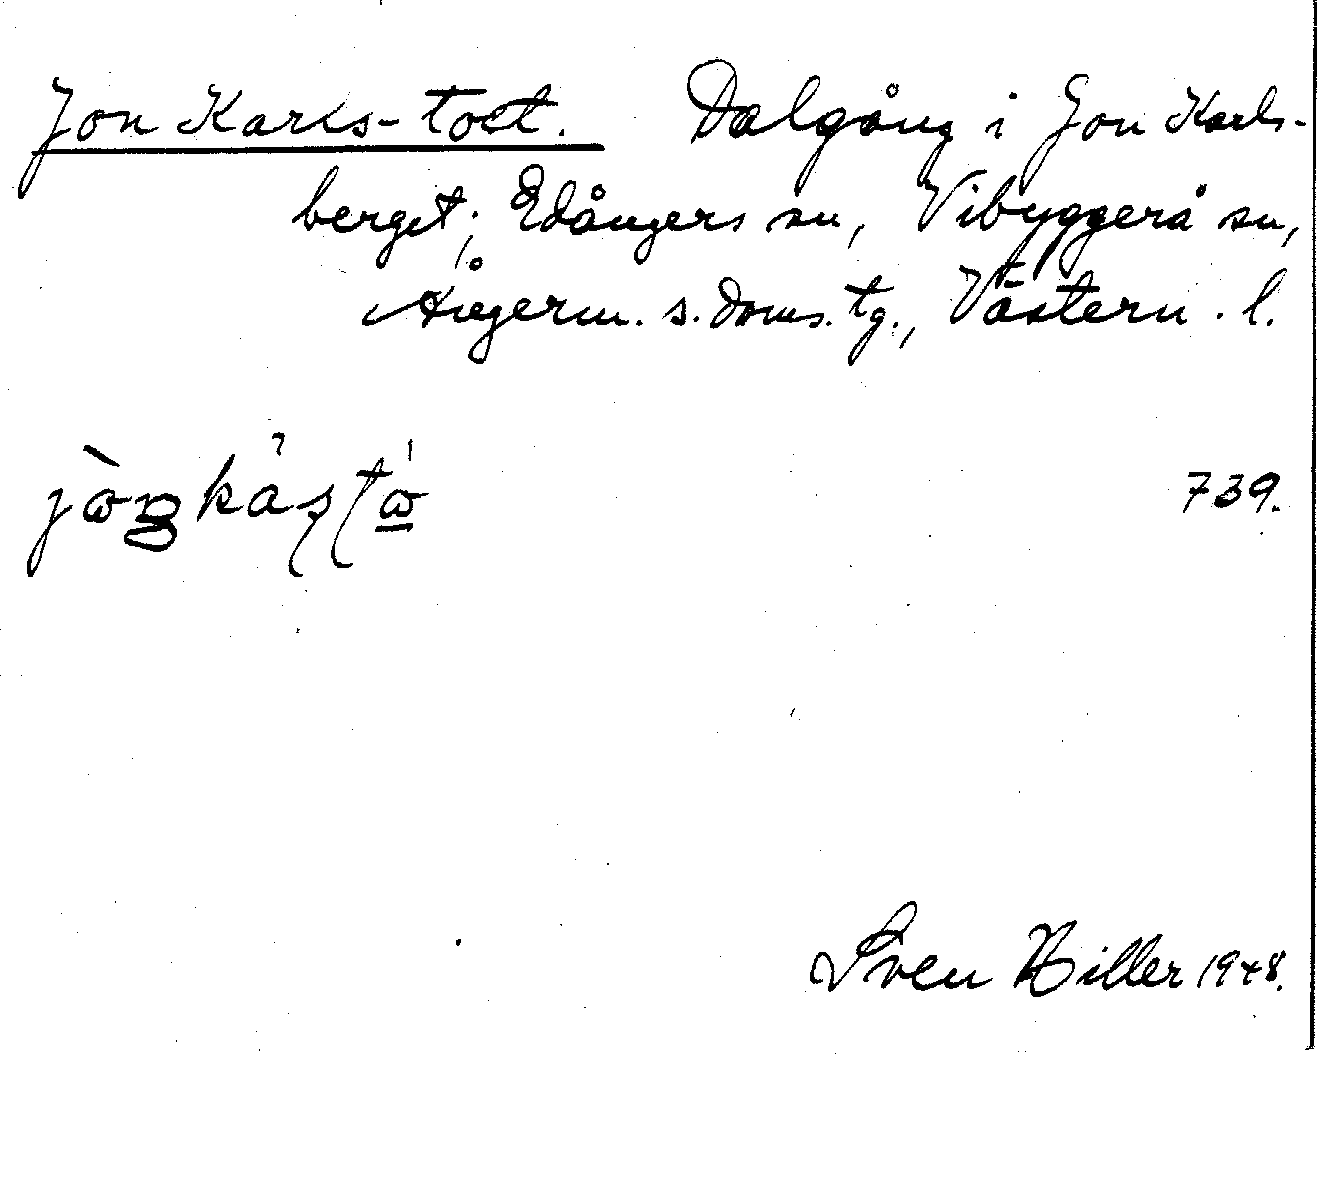 Jon Karls-toet. Dalgång i Jon Karls-
berget; Edångers sn, Vibyggerå sn,
Ångerm. s. doms. tg., Västern. l.
739.
Sven Hiller 1948.